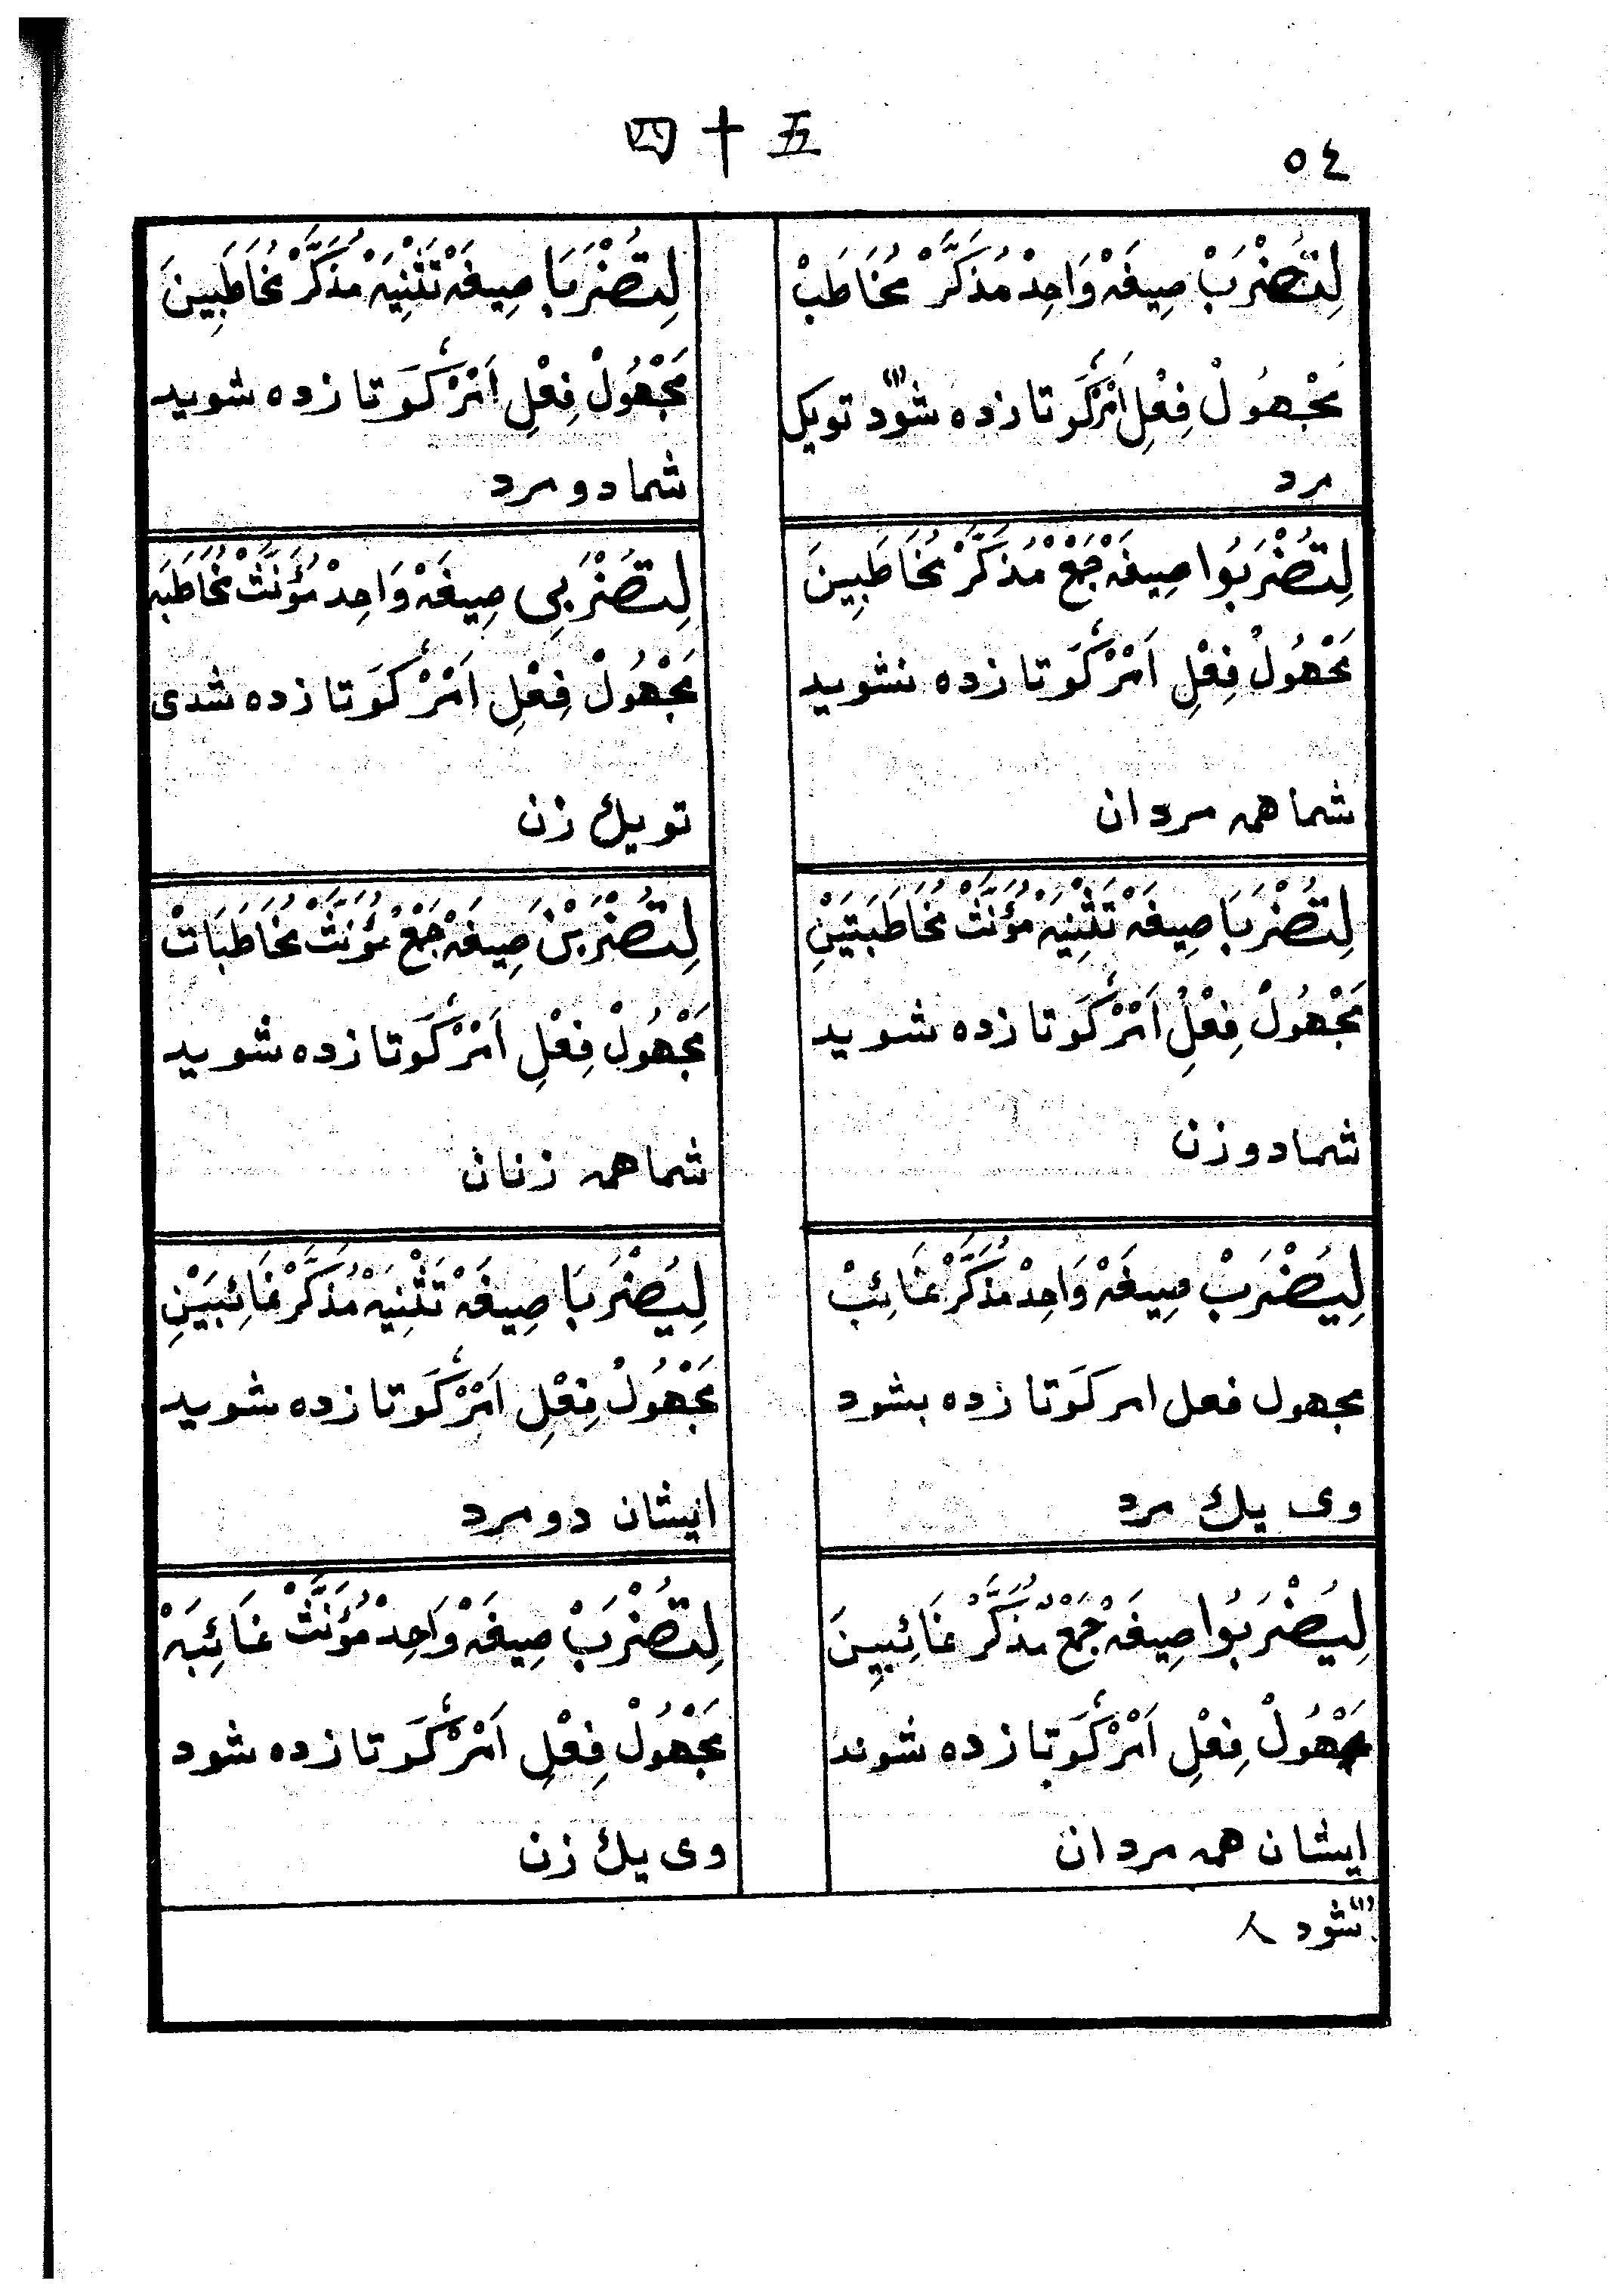 四十五
٥٤
لِتُضْرَبْ صِيغَهْ وَاحِدْ مُذَكَّرْ مُخَاطَبْ
مَجْهُولْ فِعْلِ اَمْرْ كَوتا زده شود (١) تو یک
مرد
لِتُضْرَبَا صِيغَهْ تَثْنِيَهْ مُذَكَّرْ مُخَاطَبِينَ
مَجْهُولْ فِعْلِ اَمْرْ كَوتا زده شوید
شما دو مرد
لِتُضْرَبُوا صِيغَهْ جَمْعْ مُذَكَّرْ مُخَاطَبِينَ
مَجْهُولْ فِعْلِ اَمْرْ كَوتا زده نشوید
شما همه مردان
لِتُضْرَبِی صِيغَهْ وَاحِدْ مُؤَنَّثْ مُخَاطَبَه
مَجْهُولْ فِعْلِ اَمْرْ كَوتا زده شدی
تو یك زن
لِتُضْرَبَا صِيغَهْ تَثْنِيَهْ مُؤَنَّثْ مُخَاطَبَتَيْنِ
مَجْهُولْ فِعْلُ اَمْرْ كَوتا زده شوید
شما دو زن
لِتُضْرَبْنَ صِيغَهْ جَمْعْ مُؤَنَّثْ مُخَاطَبَاتْ
مَجْهُولْ فِعْلِ اَمْرْ كَوتا زده شوید
شما همه زنان
لِيُضْرَبْ صِيغَهْ وَاحِدْ مُذَكَّرْ غَائِبْ
مجهول فعل امر كَوتا زده بشود
وی یك مرد
لِيُضْرَبَا صِيغَهْ تَثْنِيَهْ مُذَكَّرْ غَائِبَيْنِ
مَجْهُولْ فِعْلِ اَمْرْ كَوتا زده شوید
ایشان دو مرد
لِيُضْرَبُوا صِيغَهْ جَمْعْ مُذَكَّرْ غَائِبِينَ
مَجْهُولْ فِعْلِ اَمْرْ كَوتا زده شوند
ایشان همه مردان
لِتُضْرَبْ صِيغَهْ وَاحِدْ مُؤَنَّثْ غَائِبَهْ
مَجْهُولْ فِعْلِ اَمْرْ كَوتا زده شود
وی یك زن
(١) نشود